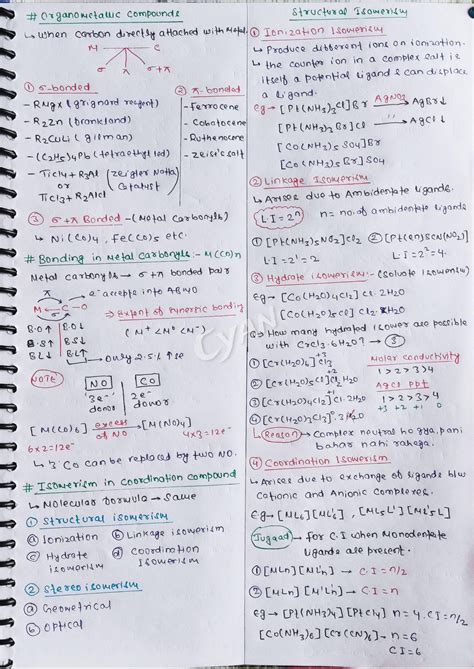 # Organometallic compounds
↳ When Carbon directly attached with Metal.
M — C
σ π σ+π
① σ-bonded
- RMgx (grignard reagent)
- R2Zn (frankland)
- R2CuLi (gilman)
- (C2H5)4Pb (tetraethyl lead)
- TiCl4 + R3Al (zeigler Natta)
or Catalyst
TiCl3 + R2AlCl
② π-bonded
- Ferrocene
- Cobatocene
- Ruthenocene
- Zeise's salt
③ σ+π Bonded - (Metal Carbonyls)
↳ Ni(CO)4, Fe(CO)5 etc.
# Bonding in Metal Carbonyls :- M(CO)n
Metal carbonyls → σ+π bonded pair
π → e⁻ accepts into ABMO
M C-O
σ
⇒ Extent of synergic bonding
B.O↑ B.O↓
B.S↑ B.S↓
B.L↓ B.L↑
(M⁺ < M⁰ < M⁻)
↳ Only 2.5% ↑se
NOTE
NO CO
'3e⁻' donor
2e⁻ donor
[M(CO)6] excess of NO → [M(NO)4]
6x2=12e⁻ 4x3=12e⁻
↳ '3'CO can be replaced by two NO.
# Isomerism in coordination compound
↳ Molecular formula → Same
① Structural isomerism
ⓐ Ionization ⓑ Linkage isomerism
ⓒ Hydrate isomerism ⓓ Coordination Isomerism
② Stereo isomerism
ⓐ Geometrical
ⓑ Optical
Structural Isomerism
① Ionization Isomerism
↳ Produce different ions on ionization.
↳ the counter ion in a complex salt is
itself a potential ligand & can displace
a ligand.
eg → [Pt(NH3)3Cl]Br AgNO3 → AgBr↓
[Pt(NH3)3Br]Cl → AgCl↓
[CO(NH3)5SO4]Br
[CO(NH3)5Br]SO4
② Linkage Isomerism
↳ Arises due to Ambidentate ligands.
L.I = 2ⁿ n = no. of ambidentate ligands
① [Pt(NH3)5NO2]Cl2 ② [Pt(en)SCN(NO2)]
L.I = 2¹ = 2. L.I = 2² = 4.
③ Hydrate isomerism :- (Solvate isomerism)
eg → [CO(H2O)4Cl2]Cl.2H2O
[CO(H2O)5Cl]Cl2.H2O
Q → How many hydrated isomer are possible
with CrCl3.6H2O? → ③
① [Cr(H2O)6]⁺³Cl3
② [Cr(H2O)5Cl]⁺²Cl2.H2O
③ [Cr(H2O)4Cl2]⁺¹Cl.2H2O
④ [Cr(H2O)3Cl3]⁰.3H2O
Molar Conductivity
1 > 2 > 3 > 4
AgCl ppt
1 > 2 > 3 > 4
+3 +2 +1 0
↳ Reason → Complex neutral ho gya, pani
bahar nahi rahega.
④ Coordination Isomerism
↳ Arises due to exchange of ligands b/w
Cationic and Anionic Complexes.
eg → [ML6][M'L'6], [ML5L'][M'L'5L]
Jugaad → for C.I when Monodentate
ligands are present.
① [MLn][M'L'n] → C.I = n/2
② [MLn][M'L'n] → C.I = n
eg → [Pt(NH3)4][PtCl4] n=4. C.I = n/2
[CO(NH3)6][Cr(CN)6] → n=6
C.I=6
CYAN